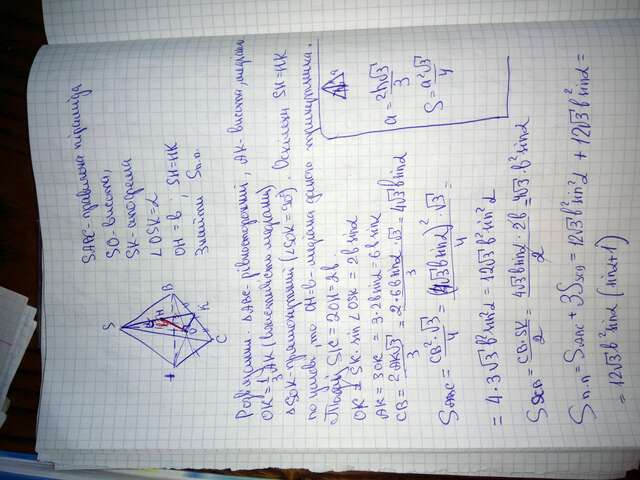 SABC - правильна піраміда
SO - висота,
SK - апофема
∠OSK = α
OH = b ; SH = HK
Знайти Sп.п.
S
H
A
B
O
K
C
Розв'язання. △ABC - рівносторонній, AK - висота, медіана
OK = 1/3 AK (властивість медіани)
△SOK - прямокутний (∠SOK = 90°). Оскільки SH = HK
по умові, то OH = b - медіана даного трикутника.
Тоді SK = 2OH = 2b.
OK = SK · sin∠OSK = 2b sinα
AK = 3OK = 3 · 2b sinα = 6b sinα
CB = 2AK√3/3 = 2·6b sinα·√3/3 = 4√3 b sinα
S ABC = CB²·√3/4 = (4√3 b sinα)²·√3/4 =
= 4·3√3 b² sin²α = 12√3 b² sin²α
S SCB = CB·SK/2 = 4√3 b sinα · 2b/2 = 4√3 · b² sinα
Sп.п = S ABC + 3S SCB = 12√3 b² sin²α + 12√3 b² sinα =
= 12√3 b² sinα (sinα + 1)
a
a = 2h√3/3
S = a²√3/4